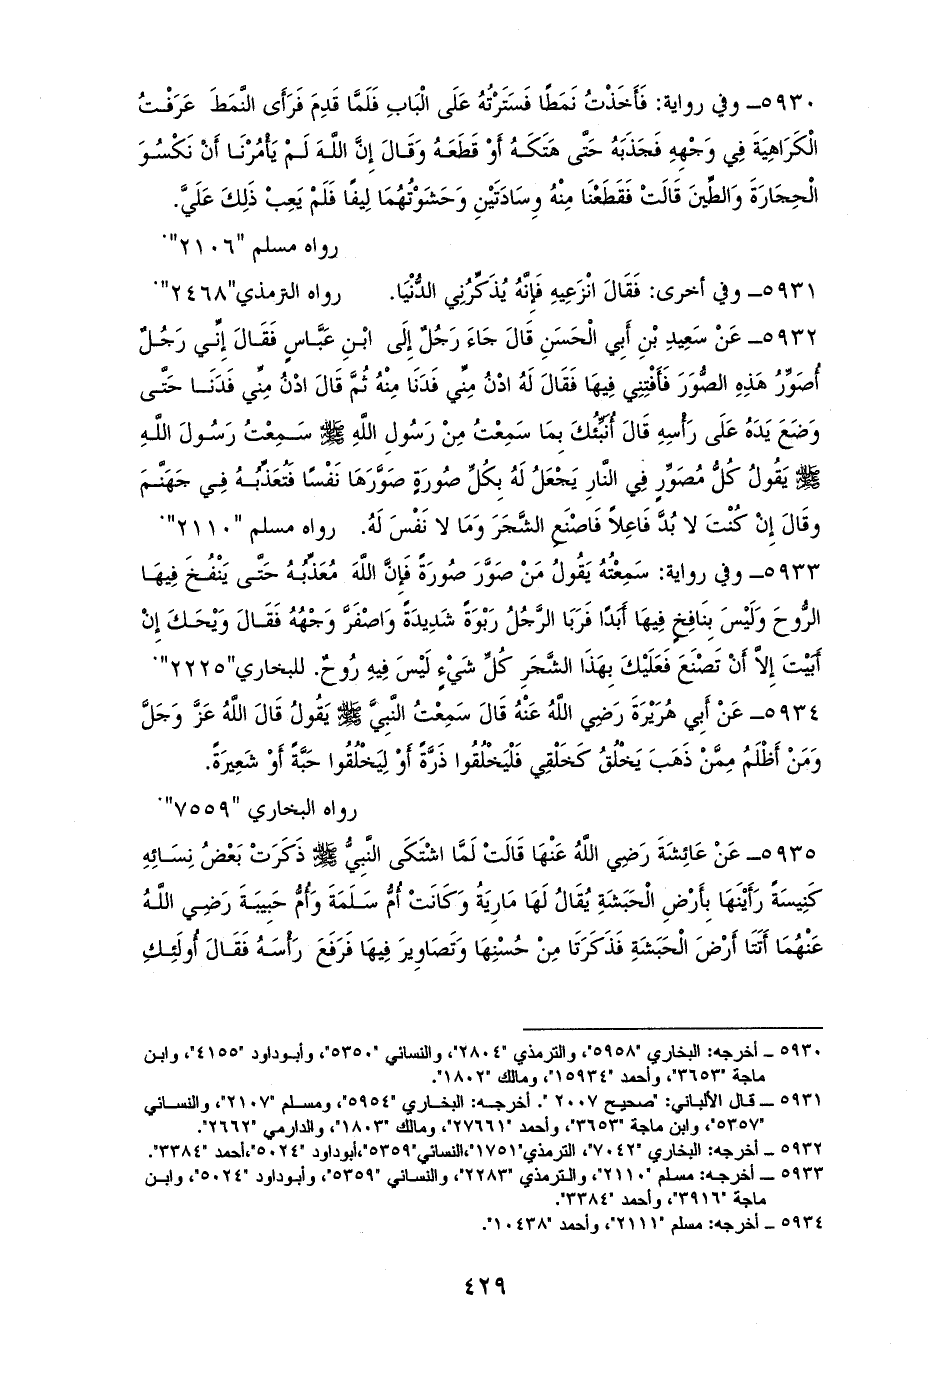 ٥٩٣٠ـ وفي رواية: فَأَخَذْتُ نَمَطًا فَسَتَرْتُهُ عَلَى الْبَابِ فَلَمَّا قَدِمَ فَرَأَى النَّمَطَ عَرَفْتُ
الْكَرَاهِيَةَ فِي وَجْهِهِ فَجَذَبَهُ حَتَّى هَتَكَهُ أَوْ قَطَعَهُ وَقَالَ إِنَّ اللَّهَ لَمْ يَأْمُرْنَا أَنْ نَكْسُوَ
الْحِجَارَةَ وَالطِّينَ قَالَتْ فَقَطَعْنَا مِنْهُ وِسَادَتَيْنِ وَحَشَوْتُهُمَا لِيفًا فَلَمْ يَعِبْ ذَلِكَ عَلَيَّ.
رواه مسلم "٢١٠٦".
٥٩٣١ـ وفي أخرى: فَقَالَ انْزَعِيهِ فَإِنَّهُ يُذَكِّرُنِي الدُّنْيَا. رواه الترمذي"٢٤٦٨".
٥٩٣٢ـ عَنْ سَعِيدِ بْنِ أَبِي الْحَسَنِ قَالَ جَاءَ رَجُلٌ إِلَى ابْنِ عَبَّاسٍ فَقَالَ إِنِّي رَجُلٌ
أُصَوِّرُ هَذِهِ الصُّوَرَ فَأَفْتِنِي فِيهَا فَقَالَ لَهُ ادْنُ مِنِّي فَدَنَا مِنْهُ ثُمَّ قَالَ ادْنُ مِنِّي فَدَنَا حَتَّى
وَضَعَ يَدَهُ عَلَى رَأْسِهِ قَالَ أُنَبِّئُكَ بِمَا سَمِعْتُ مِنْ رَسُولِ اللَّهِ ﷺ سَمِعْتُ رَسُولَ اللَّهِ
ﷺ يَقُولُ كُلُّ مُصَوِّرٍ فِي النَّارِ يَجْعَلُ لَهُ بِكُلِّ صُورَةٍ صَوَّرَهَا نَفْسًا فَتُعَذِّبُهُ فِي جَهَنَّمَ
وقَالَ إِنْ كُنْتَ لا بُدَّ فَاعِلاً فَاصْنَعِ الشَّجَرَ وَمَا لا نَفْسَ لَهُ. رواه مسلم "٢١١٠".
٥٩٣٣ـ وفي رواية: سَمِعْتُهُ يَقُولُ مَنْ صَوَّرَ صُورَةً فَإِنَّ اللَّهَ مُعَذِّبُهُ حَتَّى يَنْفُخَ فِيهَا
الرُّوحَ وَلَيْسَ بِنَافِخٍ فِيهَا أَبَدًا فَرَبَا الرَّجُلُ رَبْوَةً شَدِيدَةً وَاصْفَرَّ وَجْهُهُ فَقَالَ وَيْحَكَ إِنْ
أَبَيْتَ إِلاَّ أَنْ تَصْنَعَ فَعَلَيْكَ بِهَذَا الشَّجَرِ كُلِّ شَيْءٍ لَيْسَ فِيهِ رُوحٌ. للبخاري"٢٢٢٥".
٥٩٣٤ـ عَنْ أَبِي هُرَيْرَةَ رَضِي اللَّهُ عَنْهُ قَالَ سَمِعْتُ النَّبِيَّ ﷺ يَقُولُ قَالَ اللَّهُ عَزَّ وَجَلَّ
وَمَنْ أَظْلَمُ مِمَّنْ ذَهَبَ يَخْلُقُ كَخَلْقِي فَلْيَخْلُقُوا ذَرَّةً أَوْ لِيَخْلُقُوا حَبَّةً أَوْ شَعِيرَةً.
رواه البخاري "٧٥٥٩".
٥٩٣٥ـ عَنْ عَائِشَةَ رَضِي اللَّهُ عَنْهَا قَالَتْ لَمَّا اشْتَكَى النَّبِيُّ ﷺ ذَكَرَتْ بَعْضُ نِسَائِهِ
كَنِيسَةً رَأَيْنَهَا بِأَرْضِ الْحَبَشَةِ يُقَالُ لَهَا مَارِيَةُ وَكَانَتْ أُمُّ سَلَمَةَ وَأُمُّ حَبِيبَةَ رَضِي اللَّهُ
عَنْهُمَا أَتَتَا أَرْضَ الْحَبَشَةِ فَذَكَرَتَا مِنْ حُسْنِهَا وَتَصَاوِيرَ فِيهَا فَرَفَعَ رَأْسَهُ فَقَالَ أُولَئِكِ
٥٩٣٠ ـ أخرجه: البخاري "٥٩٥٨"، والترمذي "٢٨٠٤"، والنسائي "٥٣٥٠"، وأبوداود "٤١٥٥"، وابن
ماجة "٣٦٥٣"، وأحمد "١٥٩٣٤"، ومالك "١٨٠٢".
٥٩٣١ ـ قال الألباني: "صحيح ٢٠٠٧ ". أخرجه: البخاري "٥٩٥٤"، ومسلم "٢١٠٧"، والنسائي
"٥٣٥٧"، وابن ماجة "٣٦٥٣"، وأحمد "٢٧٦٦١"، ومالك "١٨٠٣"، والدارمي "٢٦٦٢".
٥٩٣٢ ـ أخرجه: البخاري "٧٠٤٢"، الترمذي"١٧٥١"،النسائي"٥٣٥٩"،أبوداود "٥٠٢٤"،أحمد "٣٣٨٤".
٥٩٣٣ ـ أخرجه: مسلم "٢١١٠"، والترمذي "٢٢٨٣"، والنسائي "٥٣٥٩"، وأبوداود "٥٠٢٤"، وابن
ماجة "٣٩١٦"، وأحمد "٣٣٨٤".
٥٩٣٤ ـ أخرجه: مسلم "٢١١١"، وأحمد "١٠٤٣٨".
٤٢٩